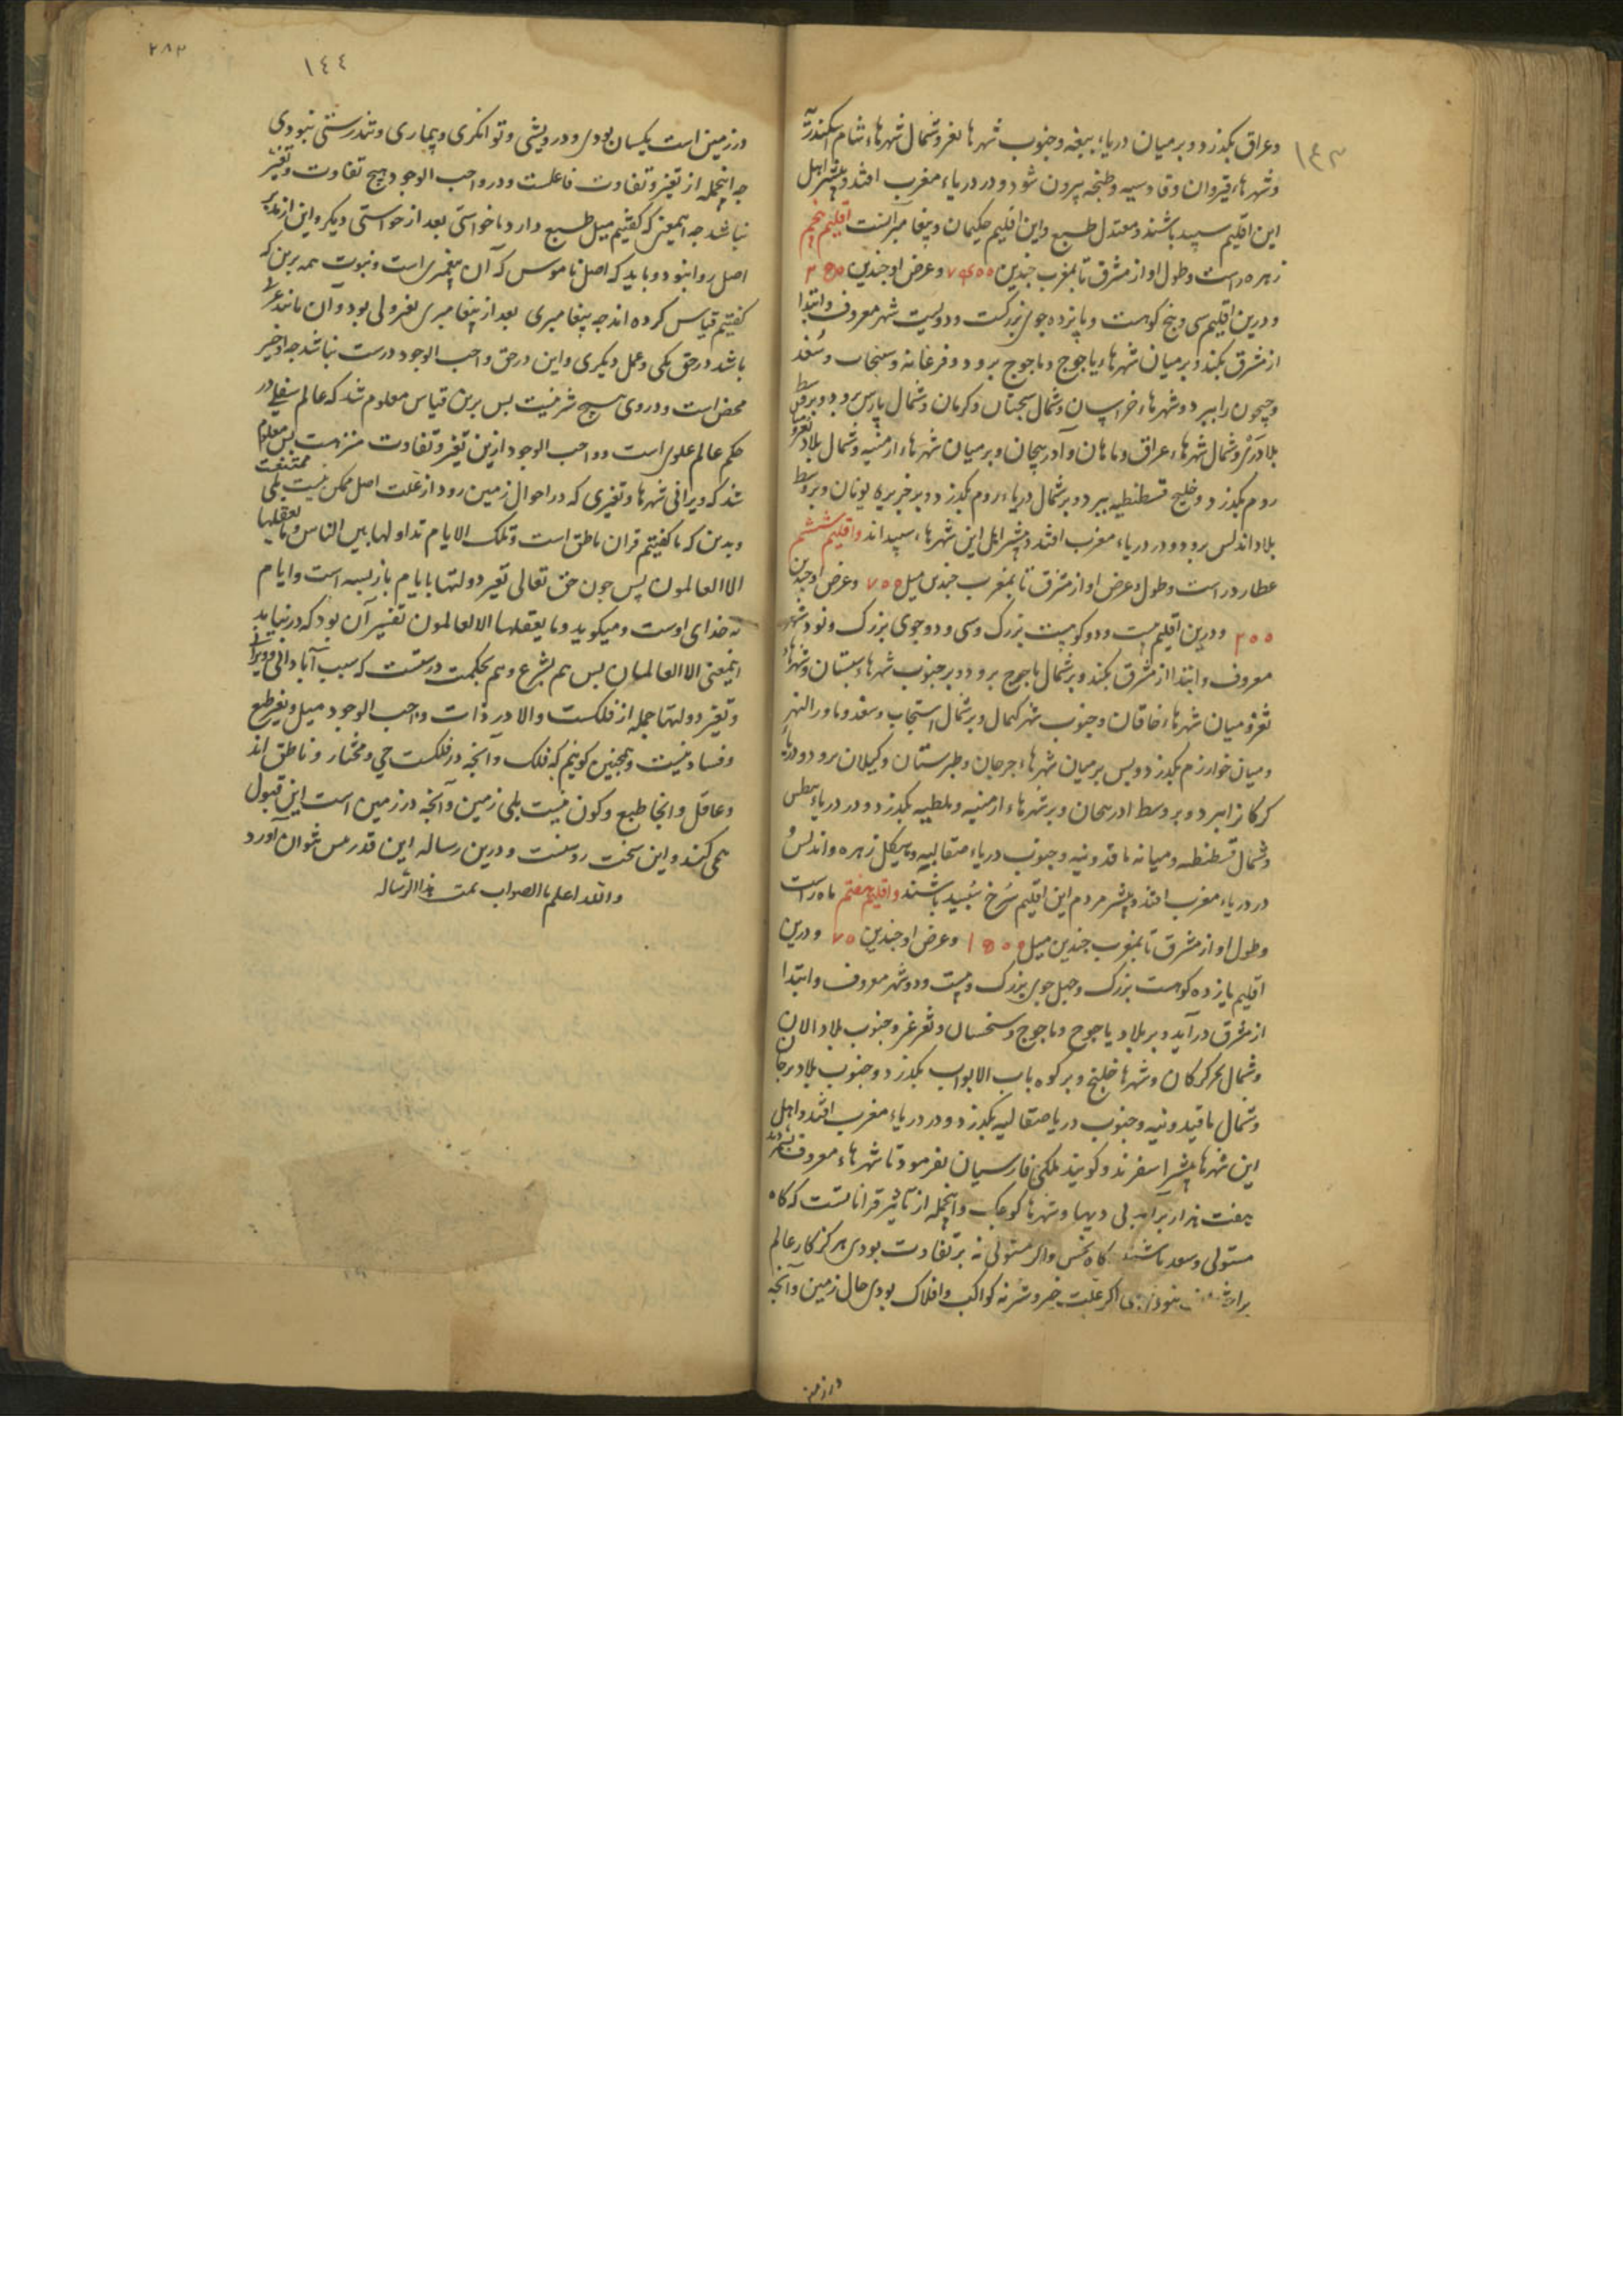 ١٤٣
وعراق بکذرد و بر میان دریاء بیغه و جنوب شهرها ثغر و شمال شهرهاء شام اسکندریه
و شهرهاء قیروان و قادسیه و طنجه بیرون شود و در دریاء مغرب افتد و بیشتر اهل
این اقلیم سپید باشند و معتدل طبع و این اقلیم حکیمان و پیغامبرانست اقلیم پنجم
زهره راست و طول او از مشرق تا بمغرب چندین و عرض او چندین
و درین اقلیم سی و پنج کوهست و پانزده جوی بزرکست و دویست شهر معروف و ابتدا
از مشرق بکند و بر میان شهرهاء یاجوج و ماجوج برود و فرغانه و سنجاب و سغد
و جیحون را ببرد و شهرهاء خراسان و شمال سجستان و کرمان و شمال پارس برود و بر وسط
بلاد ری و شمال شهرهاء عراق و ماهان و آذربیجان و بر میان شهرهاء ارمنیه و شمال بلاد
روم بکذرد و خلیج قسطنطیه ببرد و بر شمال دریاء روم بکذرد و بر جزیره یونان و بر وسط
بلاد اندلس برود و در دریاء مغرب افتد و بیشتر اهل این شهرهاء سپید اند و اقلیم ششم
عطارد راست و طول و عرض او از مشرق تا بمغرب چندین میل و عرض او چندین
و درین اقلیم بیست و دو کوهیست بزرک و سی و دو جوی بزرک و نود شهر
معروف و ابتدا از مشرق بکند و بر شمال ماجوج برود و بر جنوب شهرهاء سبستان و شهرهاء
ثغرغز میان شهرهاء خاقان و جنوب شهر کیمال و بر شمال استیجاب و سغد و ماورالنهر
و میان خوارزم بکذرد و پس بر میان شهرهاء جرجان و طبرستان و کیلان برود و دریاء
کرکان ببرد و بر وسط ادربیجان و بر شهرهاء ارمنیه و ملطیه بکذرد و در دریاء
و شمال قسطنطیه و میانه ماقدونیه و جنوب دریاء صقالبیه و هیکل زهره و اندلس
در دریاء مغرب افتد و بیشتر مردم این اقلیم سرخ سپید باشند و اقلیم هفتم ماه راست
و طول او از مشرق تا بمغرب چندین میل و عرض او چندین و درین
اقلیم یازده کوهست بزرک و چهل جوی بزرک و بیست و دو شهر معروف و ابتدا
از مشرق درآید و بر بلاد یاجوج و ماجوج و سخسان و ثغرغز و جنوب بلاد الان
و شمال بحر کرکان و شهرها خلیج و بر کوه باب الابواب بکذرد و جنوب بلاد برجان
و شمال ماقیدونیه و جنوب دریا صقالیه بکذرد و در دریاء مغرب افتد و اهل
این شهرها بیشتر اسفرند و کویند ملکی فارسیان بفرمود تا شهرهاء معروف
هفت هزار برآمد بی دیها و شهرها کوچک و اینجمله از تاثیر قراناتست که کاه
مستولی و سعد باشند کاه نحس و اکر مستولی نه بر تفاوت بودی هرکز کار عالم
نبودی اکر علت خیر و شر نه کواکب و افلاک بودی حال زمین و آنچه
در زمین
٢٨٣
١٤٤
در زمین است یکسان بودی و درویشی و توانکری و بیماری و تندرستی نبودی
چه اینجمله از تغیر و تفاوت فاعلست و در واجب الوجود هیچ تفاوت و تغیر
نباشد چه اینمعنی که کفتیم میل طبع دارد یا خواستی بعد از خواستی دیکر و این از
اصل روا نبود و باید که اصل ناموس که آن پیغمبری است و نبوت همه برین که
کفتیم قیاس کرده اند چه پیغامبری بعد از پیغامبری بغزولی بود و آن مانند
باشد در حق یکی و عمل دیکری و این در حق واجب الوجود درست نباشد چه او خیر
محض است و در وی هیچ شر نیست پس برین قیاس معلوم شد که عالم سفلی در
حکم عالم علوی است و واجب الوجود ازین تغیر و تفاوت منزهست پس معلوم
شد که ویرانی شهرها و تغیری که در احوال زمین رود از علت اصل ممکن نیست بلی ممتنعست
و بدین که ما کفتیم قران ناطق است و تلک الایام نداولها بین الناس و ما یعقلها
الا العالمون پس چون حق تعالی تغیر دولتها بایام باز بسته است و ایام
نه خدای اوست و میکوید و ما یعقلها الا العالمون تفسیر آن بود که در نیابد
اینمعنی الا العالمان پس هم بشرع و هم بحکمت درستست که سبب آبادانی و ویرانی
و تغیر دولتها جمله از فلکست والا در ذات واجب الوجود میل و تغیر طبع
و فساد نیست و همچنین کوئیم که فلک و آنچه در فلکست حی و مختار و ناطق اند
و عاقل و آنجا طبع و کون نیست بلی زمین و آنچه در زمین است این قبول
همی کنند و این سخت روشنست و درین رساله این قدر بس نتوان آورد
والله اعلم بالصواب تمت هذا الرساله